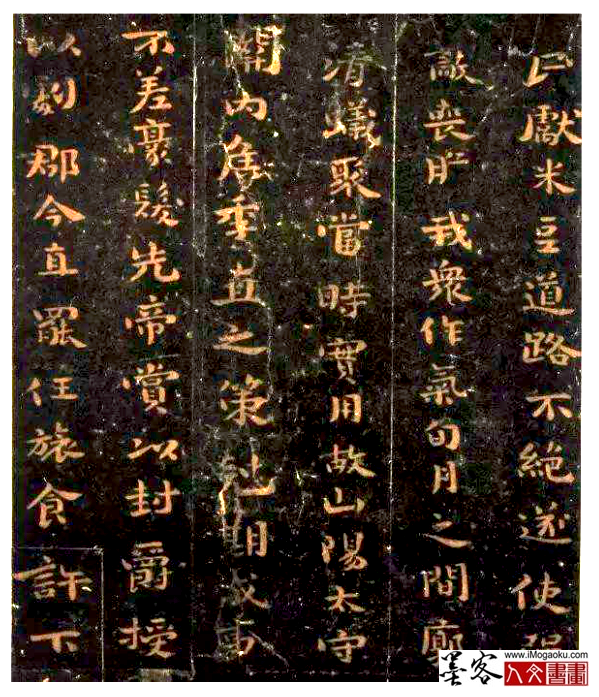 民獻米豆道路不絕遂使
敵喪膽我衆作氣旬月之間廓
清蟻聚當時實用故山陽太守
關內侯季直之策尅期成事
不差豪髮先帝賞以封爵授
以劇郡今直罷任旅食許下
www.iMogaoku.com
墨客
人文書畫